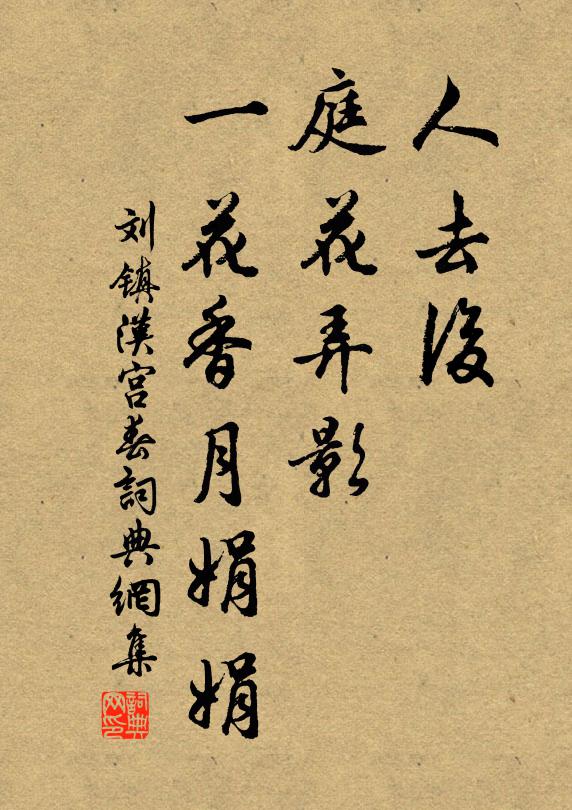 人去後
庭花弄影
一花香月娟娟
刘镇漢宫春詞典網集
詞典网印